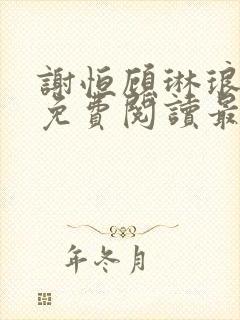 謝恒顧琳琅
免費閱讀最
年冬月